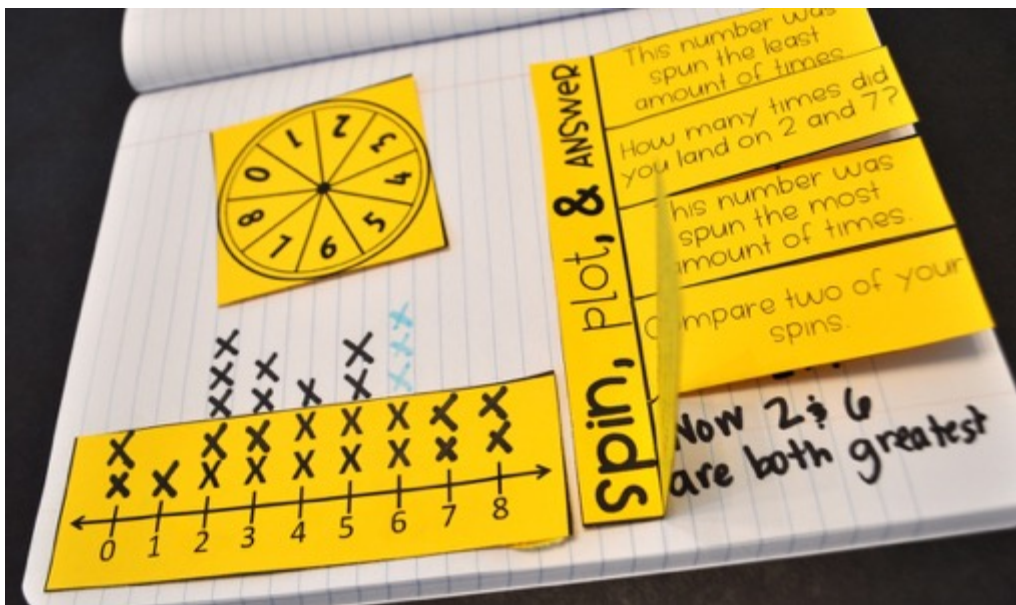 1
2
3
4
5
6
7
8
0
0 1 2 3 4 5 6 7 8
spin, plot, & ANSWER
This number was
spun the least
amount of times
How many times did
you land on 2 and 7?
his number was
spun the most
mount of times.
Compare two of your
spins.
Now 2 & 6
are both greatest